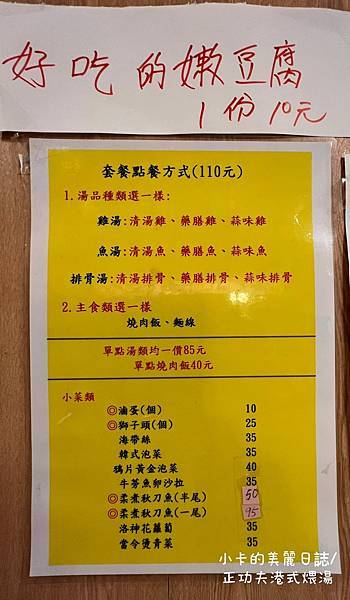 好吃的嫩豆腐
1份10元
套餐點餐方式(110元)
1.湯品種類選一樣:
雞湯:清湯雞、藥膳雞、蒜味雞
魚湯:清湯魚、藥膳魚、蒜味魚
排骨湯:清湯排骨、藥膳排骨、蒜味排骨
2.主食類選一樣
燒肉飯、麵線
單點湯類均一價85元
單點燒肉飯40元
小菜類
◎滷蛋(個) 10
◎獅子頭(個) 25
海帶絲 35
韓式泡菜 35
鴉片黃金泡菜 40
牛蒡魚卵沙拉 35
◎柔煮秋刀魚(半尾) 50
◎柔煮秋刀魚(一尾) 95
洛神花蘿蔔 35
當令燙青菜 35
小卡的美麗日誌/
正功夫港式煨湯